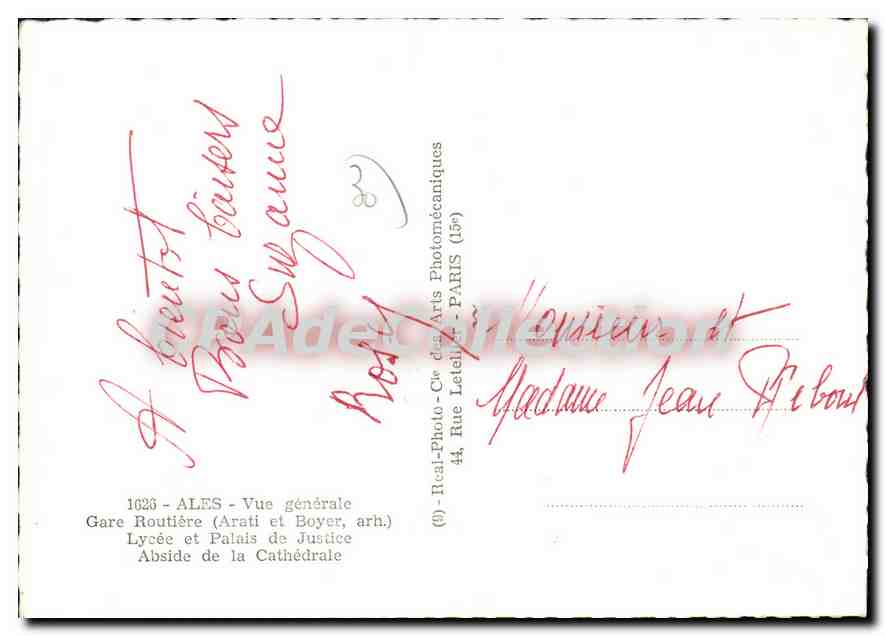 A bientôt
Bons baisers
Suzanne
1626 - ALES - Vue générale
Gare Routière (Arati et Boyer, arh.)
Lycée et Palais de Justice
Abside de la Cathédrale
(9) - Real-Photo - Cie des Arts Photomécaniques
44, Rue Letellier - PARIS (15e)
Monsieur et
Madame Jean Reboul
CPAdeCollection